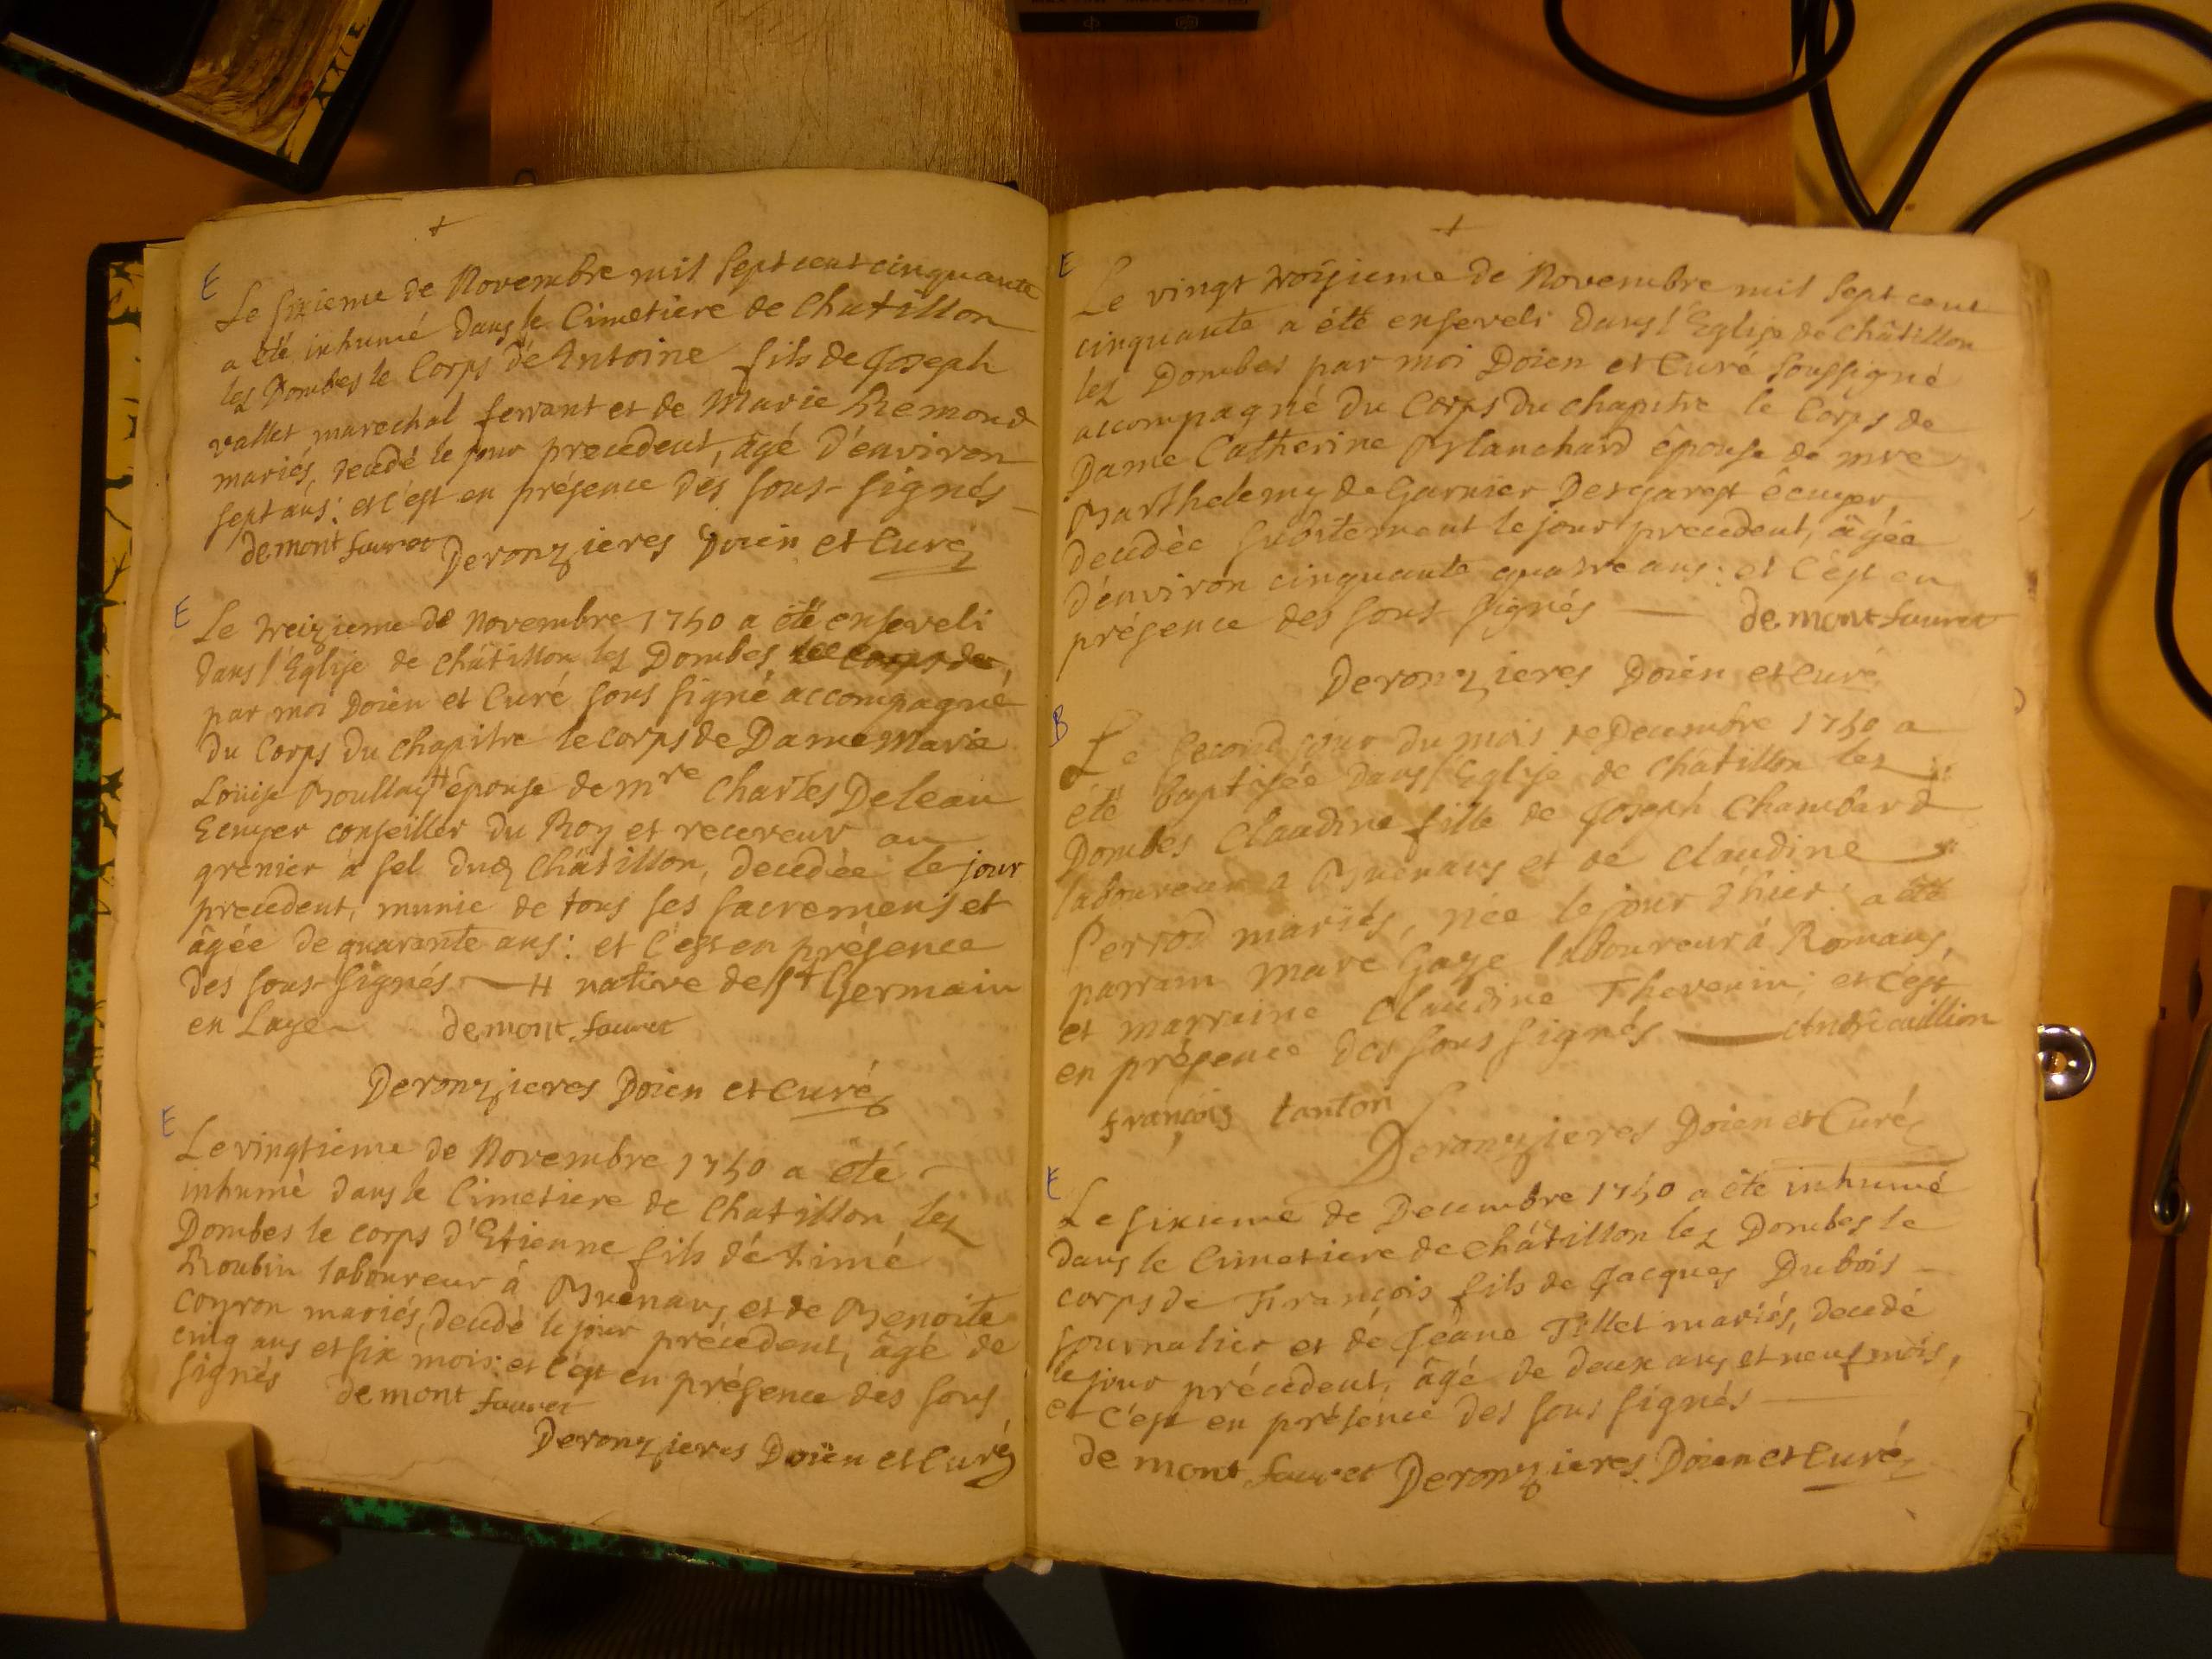 +
E
Le sixieme de Novembre mil sept cent cinquante
a été inhumé dans le Cimetiere de Chatillon
les Dombes le Corps de Antoine fils de Joseph
vallet marechal ferrant et de Marie Rémond
mariés, decedé le jour precedent, âgé d'environ
sept ans: et c'est en présence des sous-signés
demont fauret Deronzieres Doien et Curé
E
Le treizieme de Novembre 1750 a été enseveli
dans l'Eglise de Châtillon lez Dombes le Corps de
par moi Doien et Curé sous signé accompagné
du Corps du chapitre le corps de Dame Marie
Loüise Boullay # épouse de mre Charles Deleau
Ecuyer conseiller du Roy et receveur au
grenier à sel dud Châtillon, decedée le jour
precedent, munie de tous ses sacremens et
âgée de quarante ans: et c'est en présence
des sous-signés # native de st Germain
en Laye demont fauret
Deronzieres Doien et Curé
E
Le vingtieme de Novembre 1750 a été
inhumé dans le Cimetiere de Chatillon lez
Dombes le corps d'Etienne fils de
Roubin laboureur à Buenans et de Benoite
Coyron mariés, decedé le jour précedent, âgé de
cinq ans et six mois: et c'est en présence des sous
signés demont fauret
Deronzieres Doïen et Curé
+
E
Le vingt troisieme de Novembre mil sept cent
cinquante a été enseveli dans l'Eglise de Châtillon
lez Dombes par moi Doien et Curé soussigné
accompagné du Corps du chapitre le Corps de
Dame Catherine Blanchard épouse de mre
Barthelemy de Garnier Desgarest écuyer,
decedée subitement le jour precedent, âgée
d'environ cinquante quatre ans: et c'est en
présence des sous-signés demont fauret
Deronzieres Doien et Curé
B
Le second jour du mois de Decembre 1750 a
été baptisée dans l'Eglise de Châtillon lez
Dombes Claudine fille de Joseph Chambard
laboureur a Buenans et de Claudine
Perrod mariés, née le jour d'hier: a été
parrain Marc Gaze laboureur à Romans,
et marraine Claudine Thevenin; et c'est
en présence des sous signés André cuillion
françois tanton
Deronzieres Doien et Curé
E
Le sixieme de Decembre 1750 a été inhumé
dans le Cimetiere de Châtillon lez Dombes le
corps de François fils de Jacques Dubois
journalier et de Jeane Tillet mariés, decedé
le jour précedent, âgé de deux ans et neuf mois,
et c'est en présence des sous signés
de mont fauret Deronzieres Doien et Curé